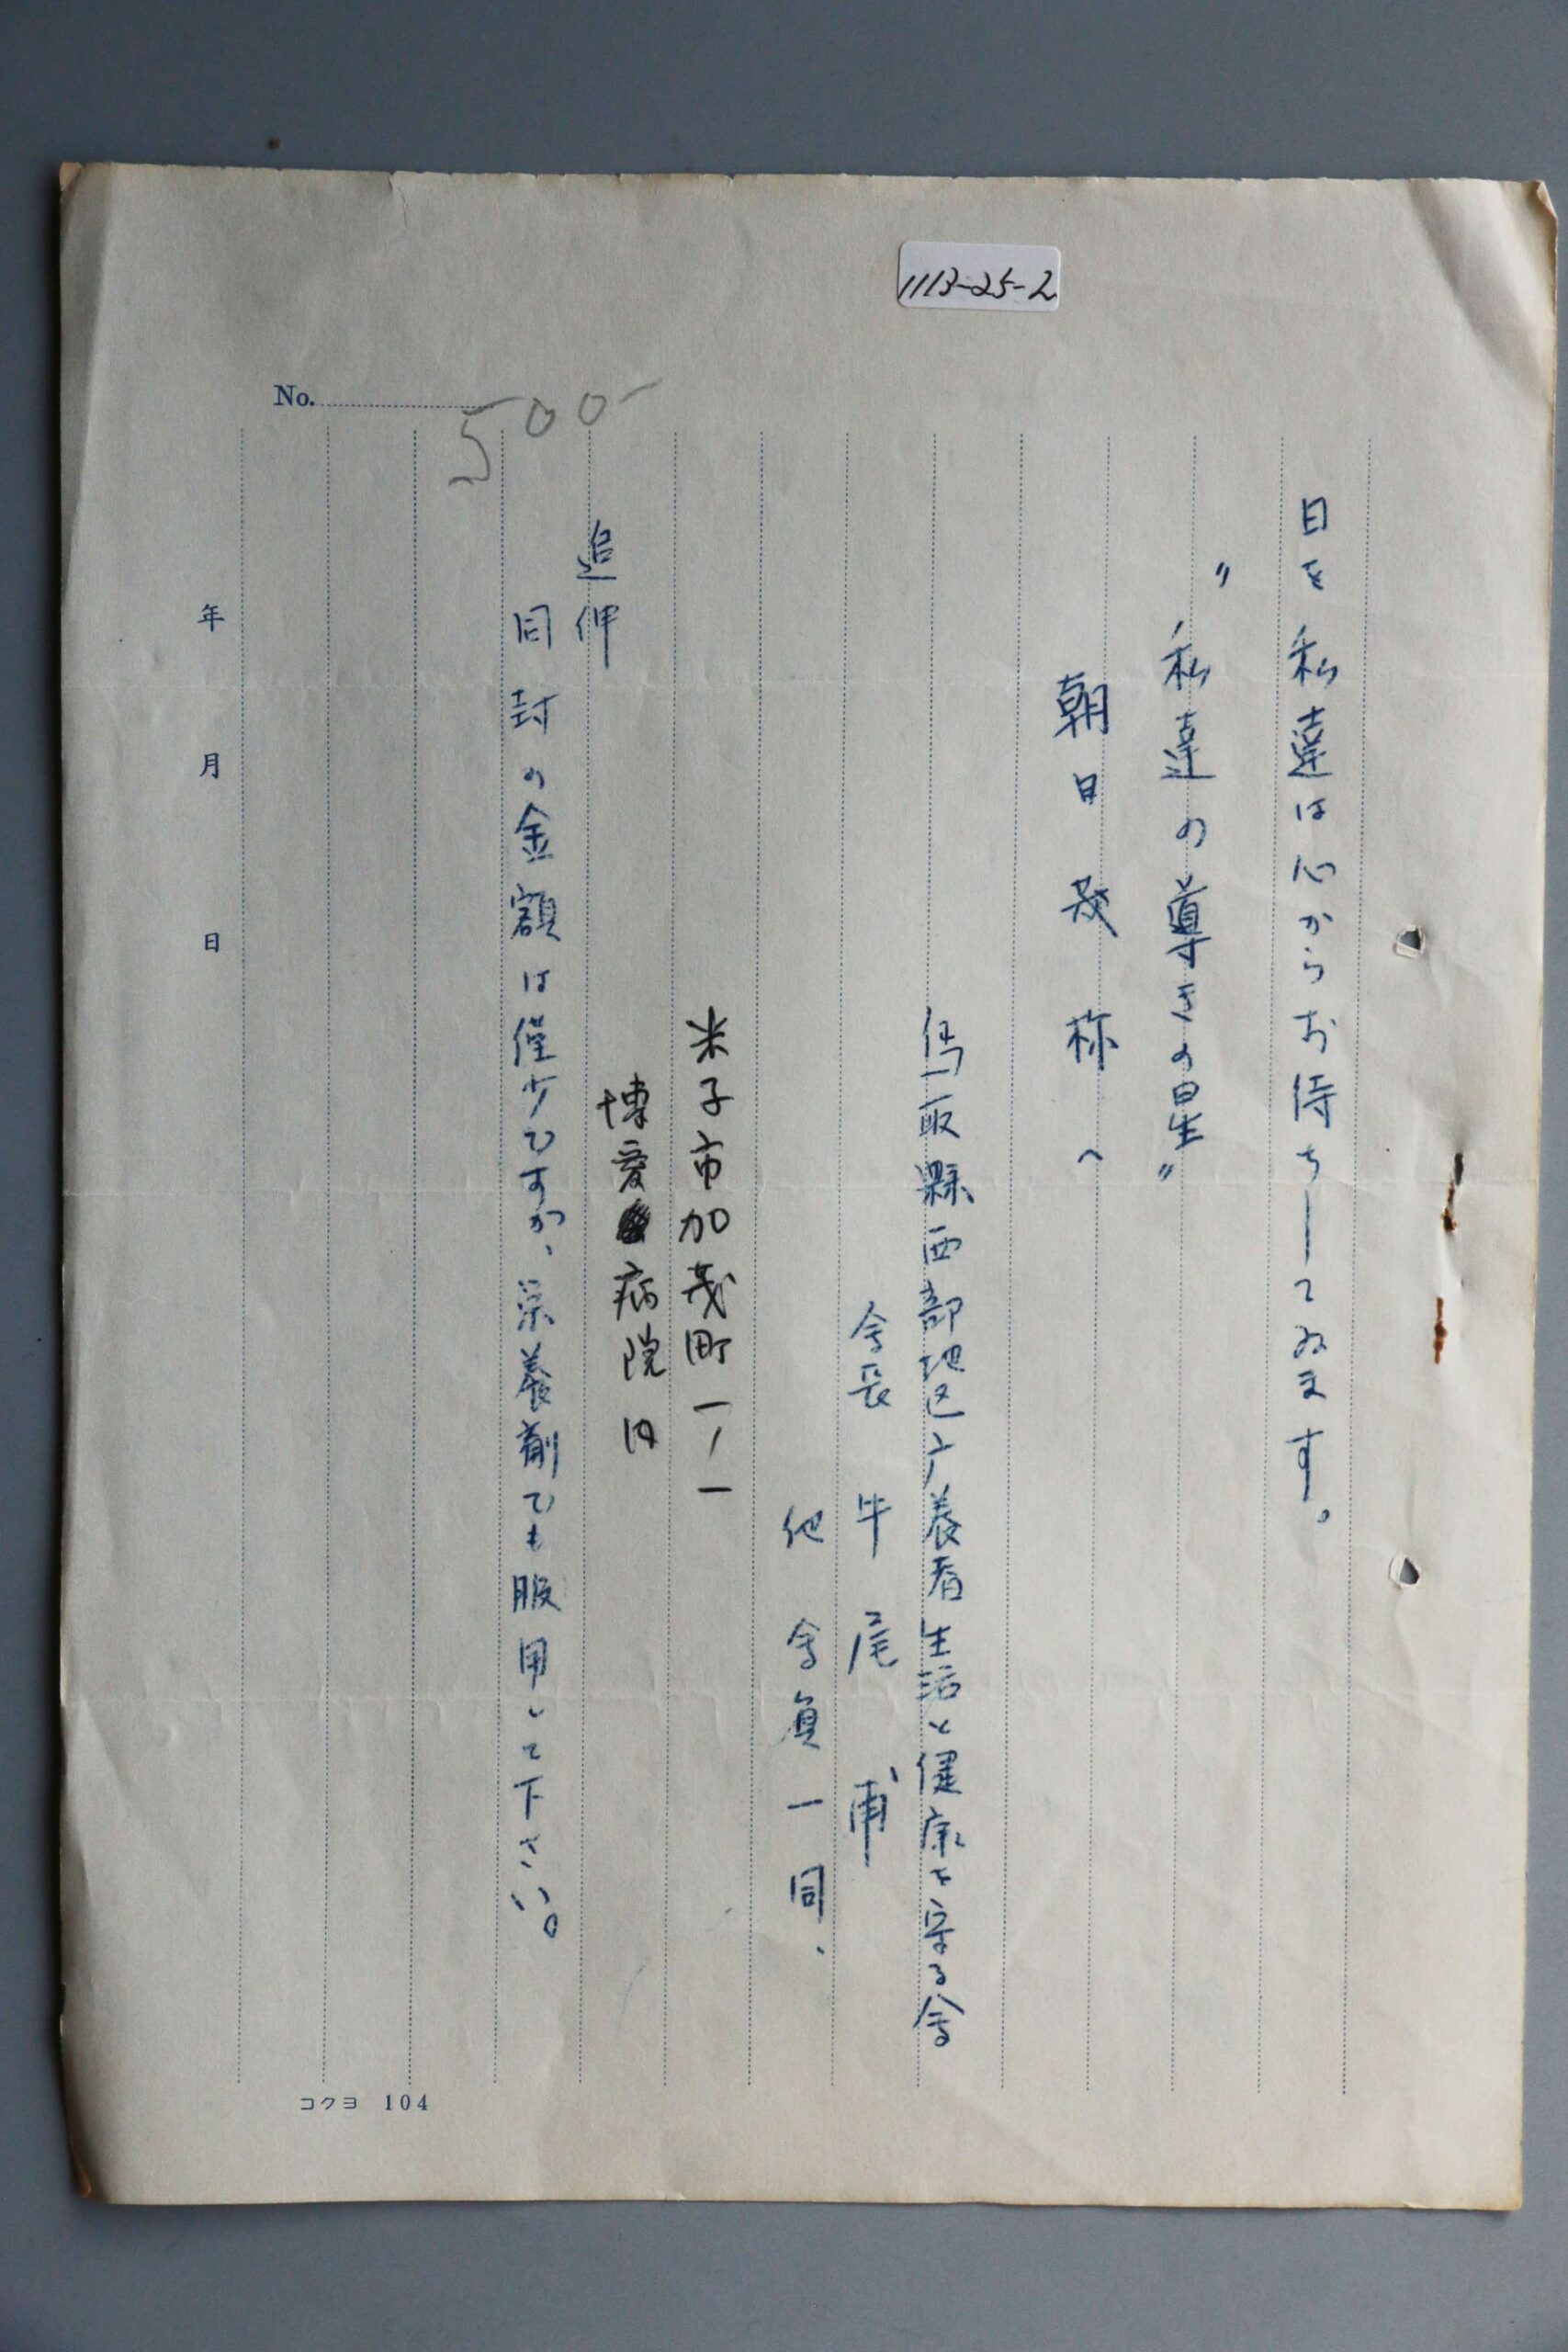 1113-25-2
No.
500-
日を私達は心からお待ちしてゐます。
〃私達の導きの星〃
朝日茂様へ
鳥取縣西部地区广養者生活と健康を守る会
会長 牛尾 甫
他 会員一同、
米子市加茂町一ノ一
博愛病院内
追伸
同封の金額は僅少ですが、栄養剤でも服用して下さい。
年 月 日
コクヨ 104